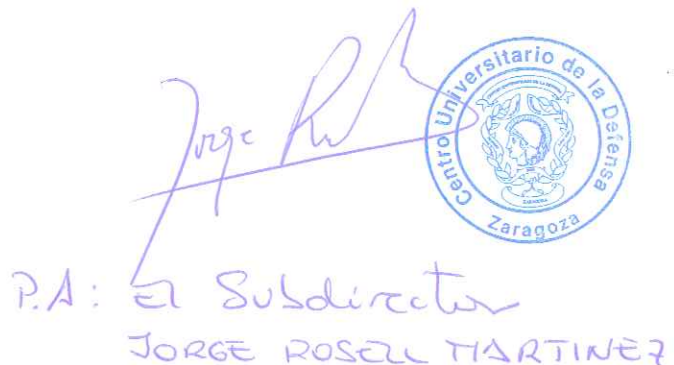 Jorge
Centro Universitario de la Defensa
Zaragoza
P.A: El Subdirector
JORGE ROSELL MARTINEZ